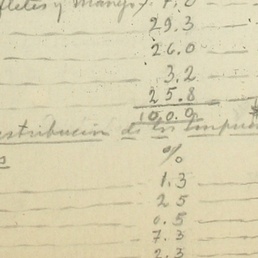 fletes y manejo). 7.0
29.3
26.0
3.2
25.8
100.0
estribución de los
%
1.3
25
0.5
7.3
2.3